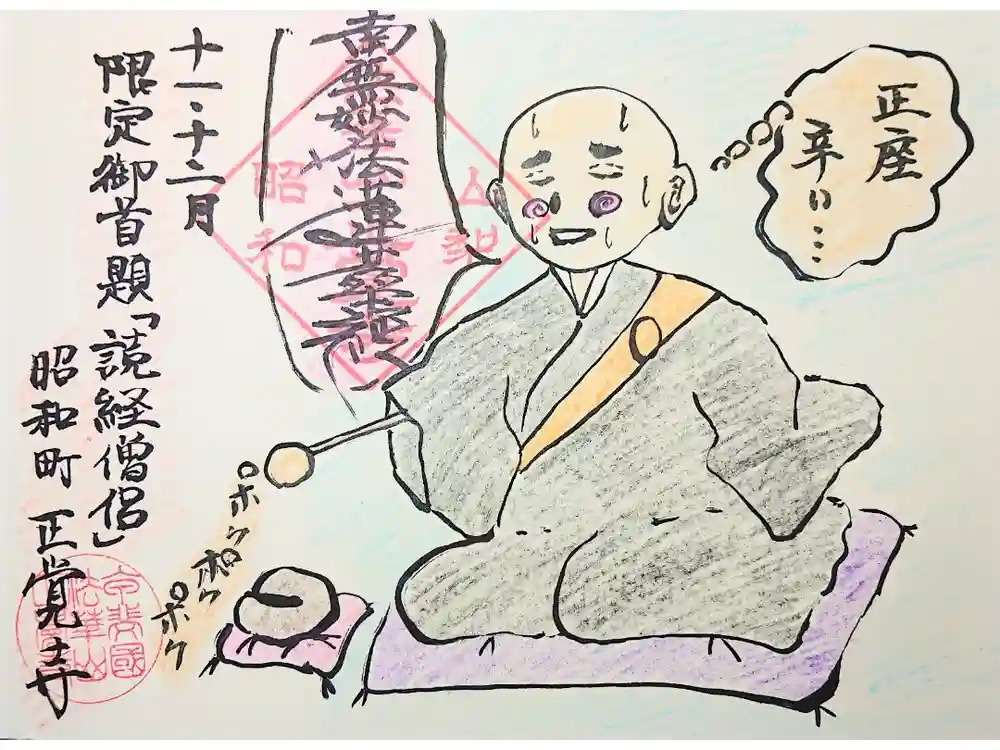 正座
辛い…
南無妙法蓮華経
十一・十二月
限定御首題「読経僧侶」
昭和町 正覚寺
ポク
ポク
ポク
昭和